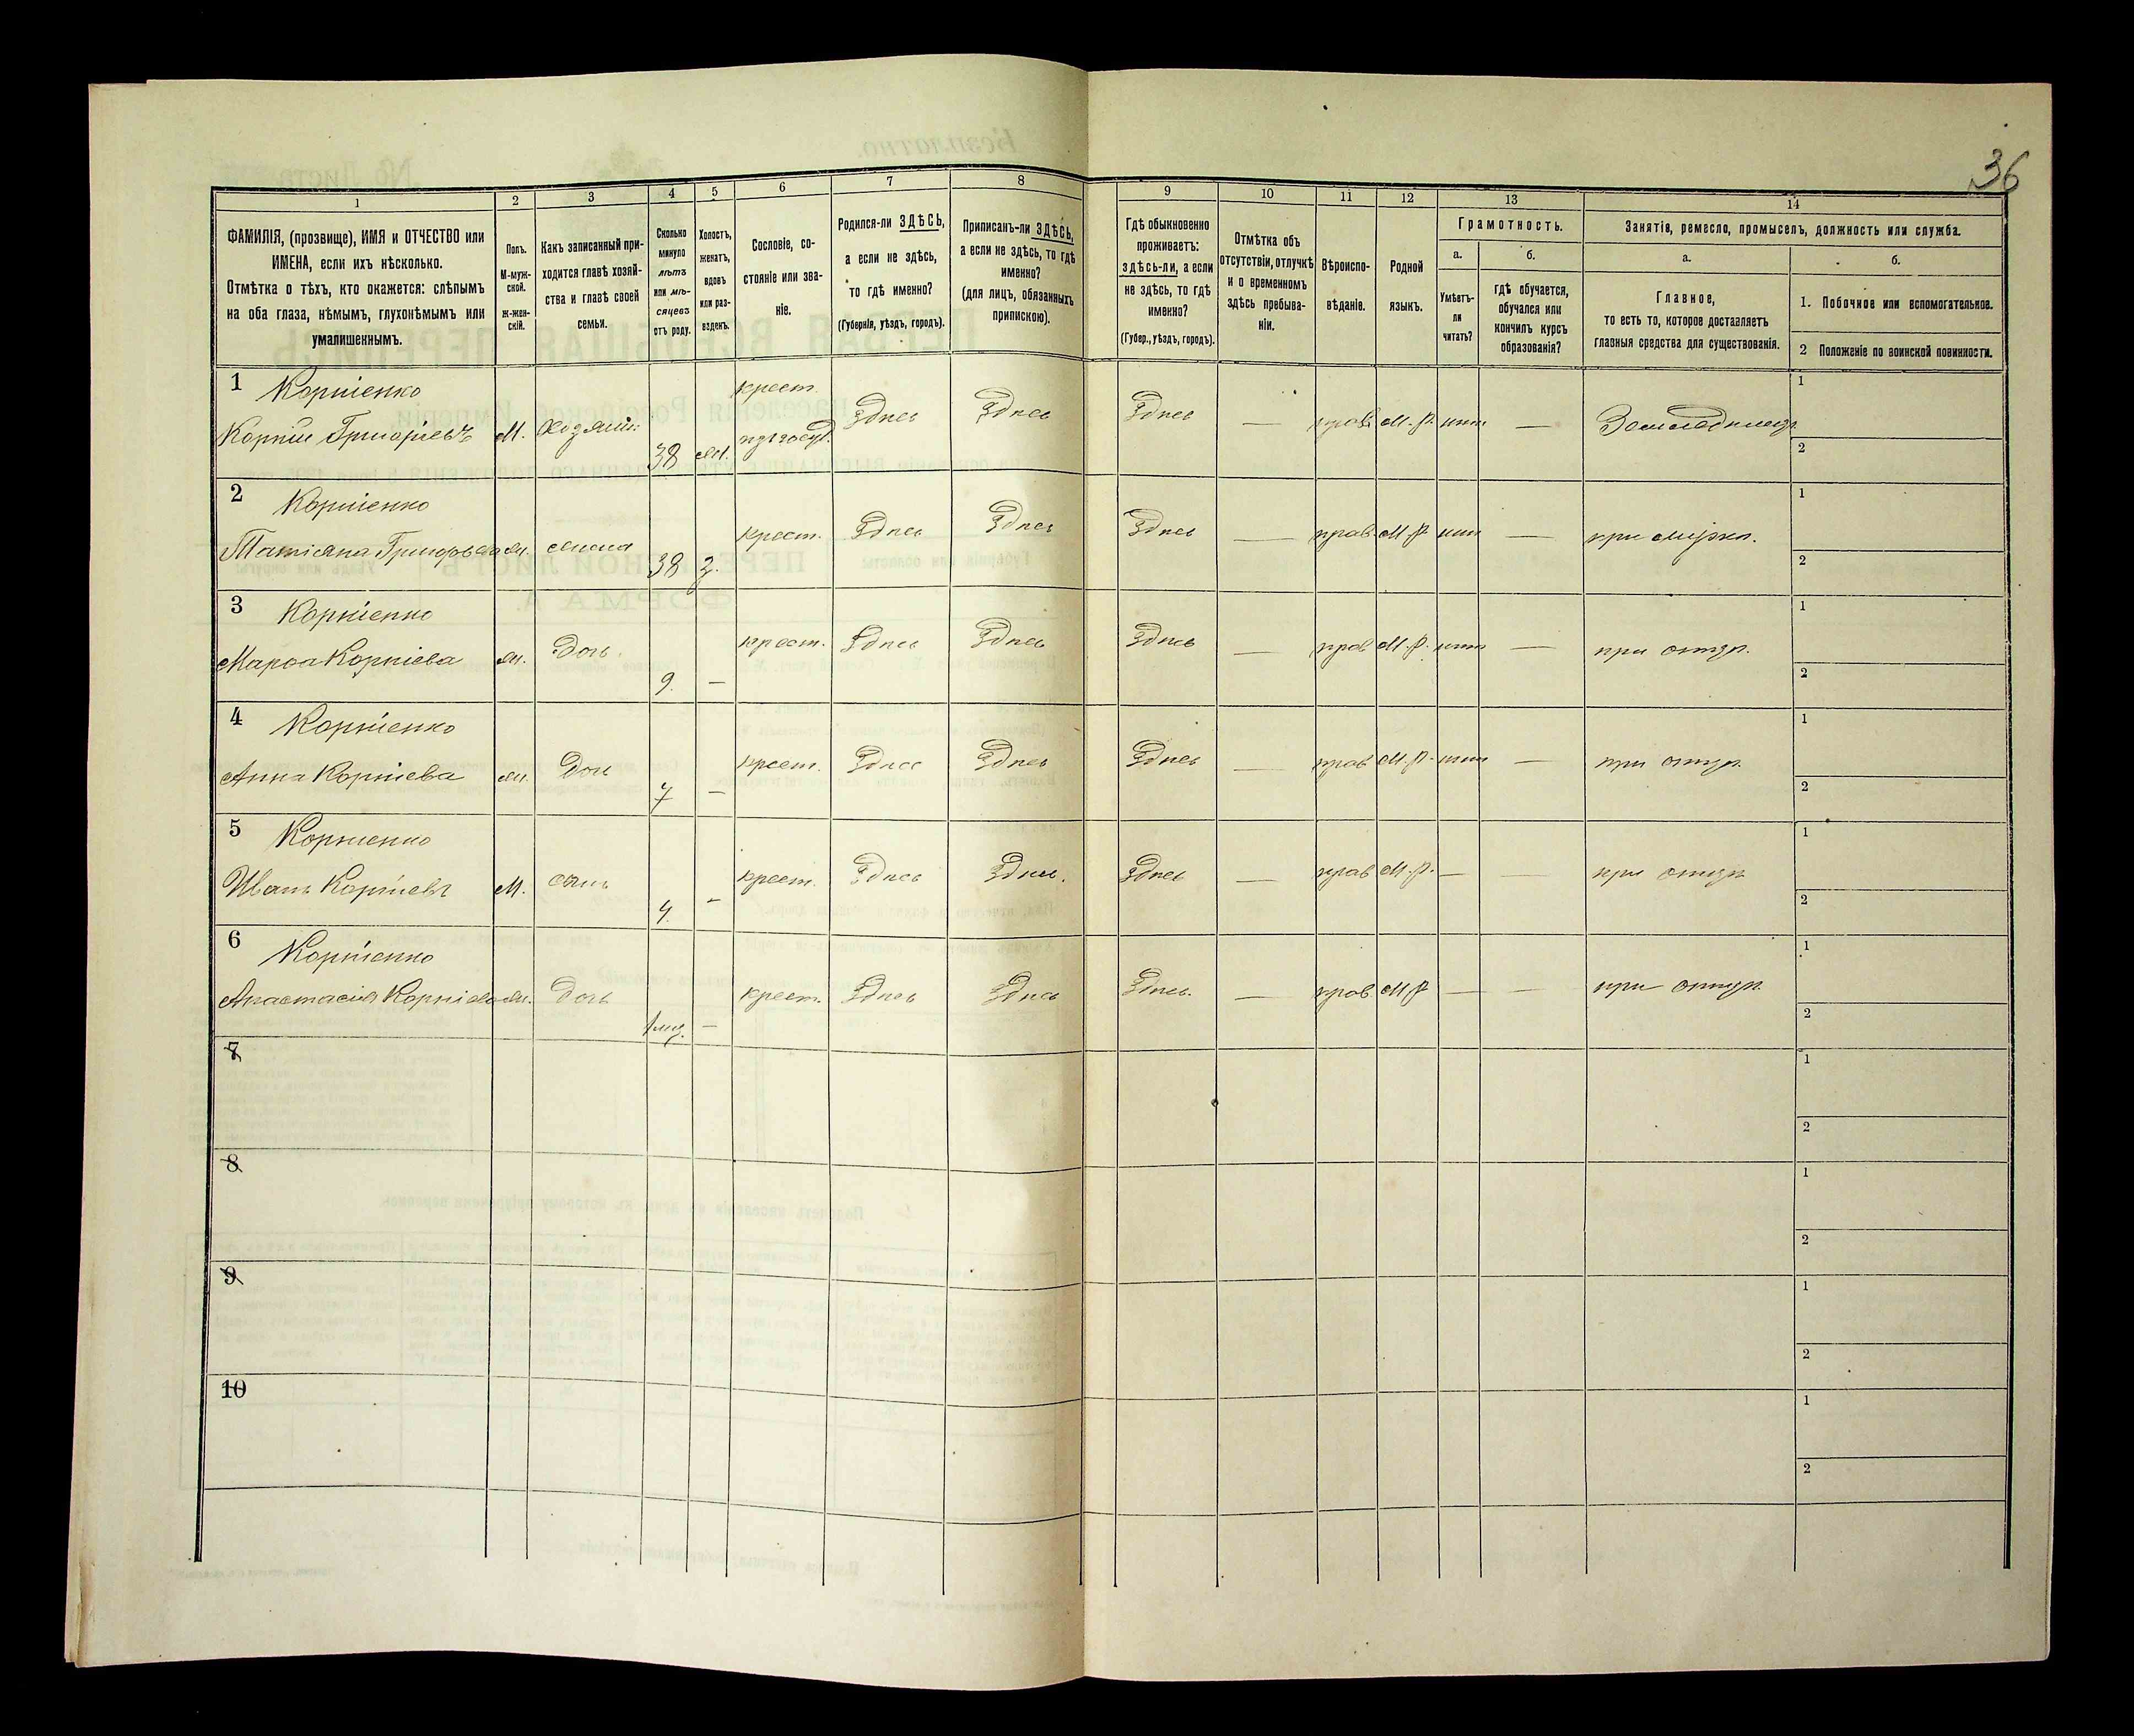 36
1
2
3
4
5
6
7
8
9
10
11
12
13
14
ФАМИЛІЯ, (прозвище), ИМЯ и ОТЧЕСТВО или
ИМЕНА, если ихъ нѣсколько.
Отмѣтка о тѣхъ, кто окажется: слѣпымъ
на оба глаза, нѣмымъ, глухонѣмымъ или
умалишеннымъ.
Полъ.
М-муж-
ской.
ж-жен-
скій.
Какъ записанный при-
ходится главѣ хозяй-
ства и главѣ своей
семьи.
Сколько
минуло
лѣтъ
или мѣ-
сяцевъ
отъ роду.
Холостъ,
женатъ,
вдовъ
или раз-
веденъ.
Сословіе, со-
стояніе или зва-
ніе.
Родился-ли ЗДѢСЬ,
а если не здѣсь,
то гдѣ именно?
(Губернія, уѣздъ, городъ).
Приписанъ-ли ЗДѢСЬ,
а если не здѣсь, то гдѣ
именно?
(для лицъ, обязанныхъ
припискою).
Гдѣ обыкновенно
проживаетъ:
здѣсь-ли, а если
не здѣсь, то гдѣ
именно?
(Губер., уѣздъ, городъ).
Отмѣтка объ
отсутствіи, отлучкѣ
и о временномъ
здѣсь пребыва-
ніи.
Вѣроиспо-
вѣданіе.
Родной
языкъ.
Грамотность.
а.
Умѣетъ-
ли
читать?
б.
гдѣ обучается,
обучался или
кончилъ курсъ
образованія?
Занятія, ремесло, промыселъ, должность или служба.
а.
Главное,
то есть то, которое доставляетъ
главныя средства для существованія.
б.
1. Побочное или вспомогательное.
2 Положеніе по воинской повинности.
1 Корніенко
Корній Григоріевъ М. Хозяинъ 38 крест. Здесь Здесь Здесь — прав. М.р. нет — 1
2
2 Корніенко
Татіяна жена 38 крест. Здесь Здесь Здесь — прав. М.р. нет — 1
2
3 Корніенко
Марѳа Корніева Дочь 9. — крест. Здесь Здесь Здесь — прав М.р. нет — 1
2
4 Корніенко
Анна Корніева Дочь 7 — крест. Здесь Здесь Здесь — прав М.р. нет — 1
2
5 Корніенко
Иванъ Корніевъ М. сынъ 4. - крест. Здесь Здесь. Здесь — прав М.р. — — 1
2
6 Корніенко
Анастасія Корніева Дочь — крест. Здесь Здесь Здесь. — прав. М.р — — 1
2
7 1
2
8 1
2
9 1
2
10 1
2